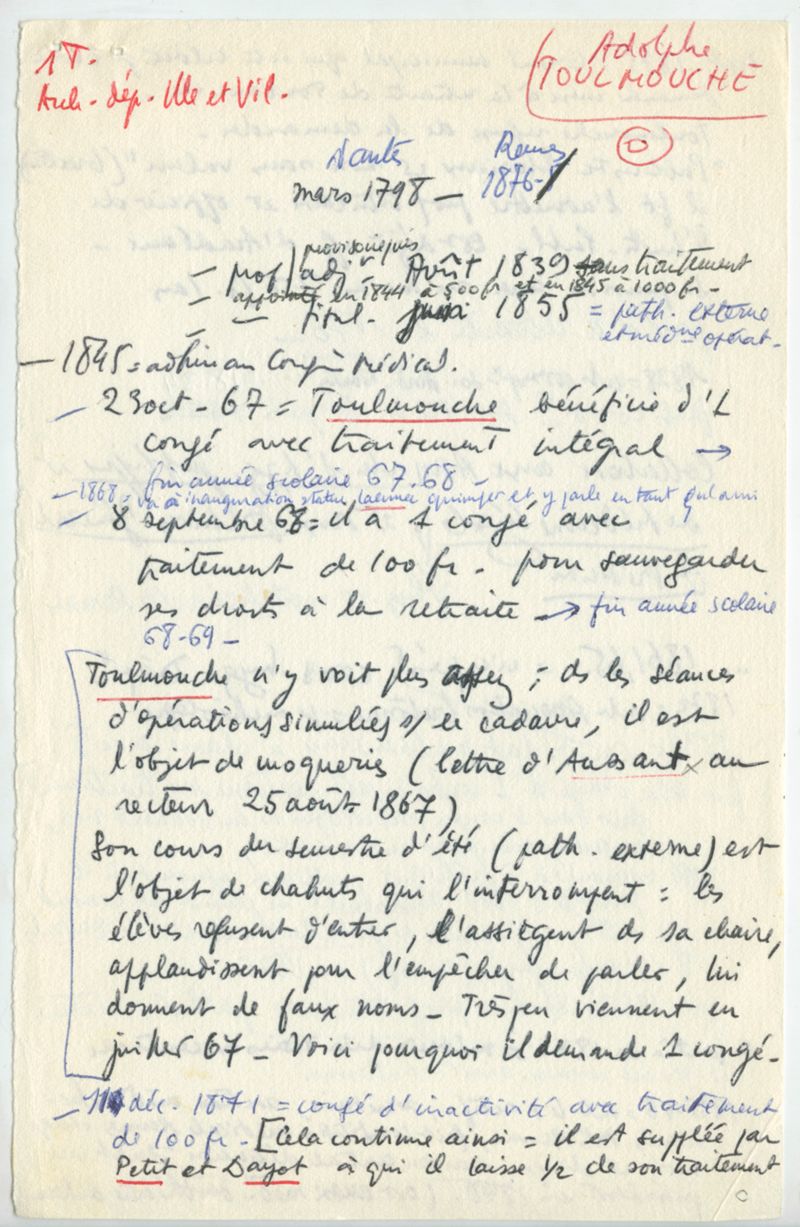 1T.
Arch. dép. Ille et Vil.
Adolphe
TOULMOUCHE
Nantes Rennes
mars 1798 — 1876
provisoire puis
— prof adj. Août 1839 sans traitement
appointé en 1844 à 500 fr et en 1845 à 1000 fr -
— titul. 1855 = path. externe
et méd. opérat.
— 1845 = adhère au Congrès Médical.
— 23 oct - 67 = Toulmouche bénéficie d'1
congé avec traitement intégral →
fin année scolaire 67.68 -
— 1868 = va à inauguration statue Laennec Quimper et y parle en tant qu'ami
— 8 septembre 68 = il a 1 congé avec
traitement de 100 fr. pour sauvegarder
ses droits à la retraite → fin année scolaire
68-69 -
Toulmouche n'y voit plus assez ; ds les séances
d'opérations simulées s/ le cadavre, il est
l'objet de moqueries (lettre d'Aussant au
recteur 25 août 1867)
Son cours du semestre d'été (path. externe) est
l'objet de chahuts qui l'interrompent = les
élèves refusent d'entrer, l'assiègent ds sa chaire,
applaudissent pour l'empêcher de parler, lui
donnent de faux noms - Très peu viennent en
juillet 67 - Voici pourquoi il demande 1 congé -
— 11 déc. 1871 = congé d'inactivité avec traitement
de 100 fr - [Cela continue ainsi = il est suppléé par
Petit et Dayot à qui il laisse ½ de son traitement